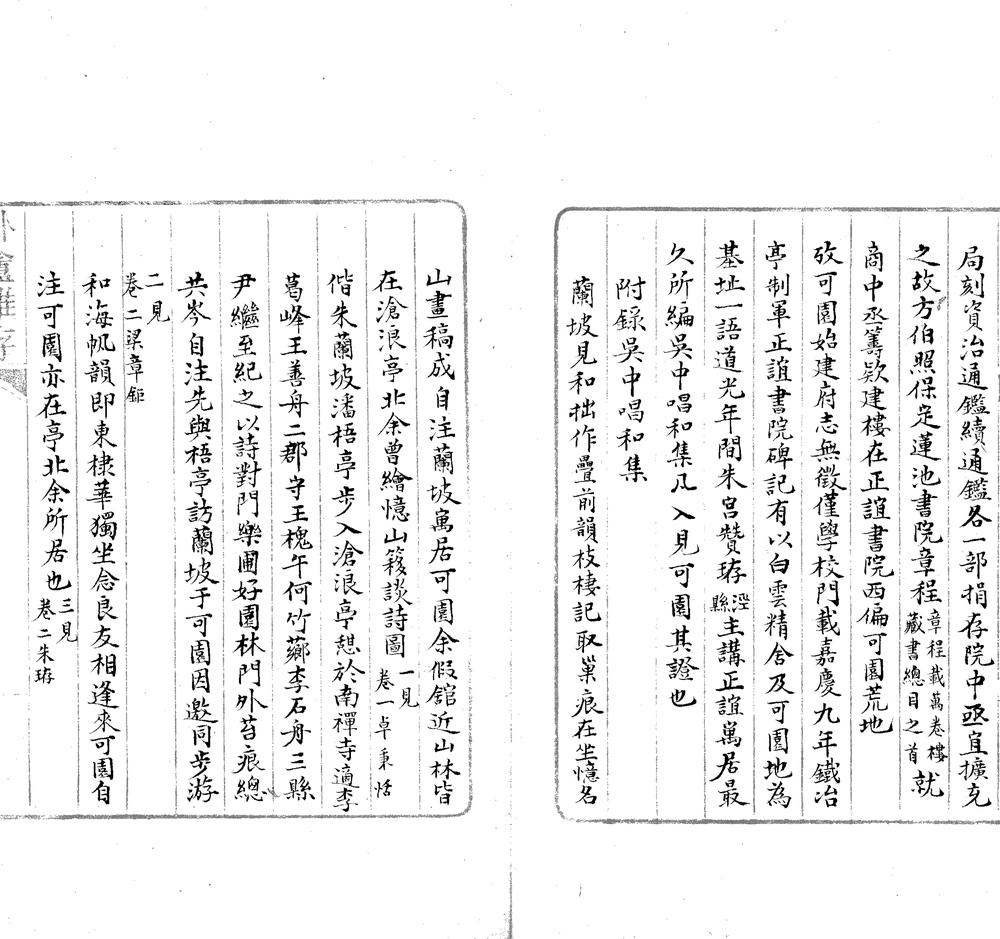 局刻資治通鑑續通鑑各一部捐存院中亟宜擴充
之故方伯照保定蓮池書院章程章程載萬卷樓藏書總目之首就
商中丞籌欵建樓在正誼書院西偏可園荒地
攷可園始建府志無徵僅學校門載嘉慶九年鐵冶
亭制軍正誼書院碑記有以白雲精舍及可園地為
基址一語道光年間朱宮贊珔涇縣主講正誼寓居最
久所編吳中唱和集凡入見可園其證也
附錄吳中唱和集
蘭坡見和拙作疊前韻枝棲記取巢痕在坐憶名
山畫稿成自注蘭坡寓居可園余假舘近山林皆
在滄浪亭北余曾繪憶山簃談詩圖一見卷一卓秉恬
偕朱蘭坡潘梧亭步入滄浪亭憩於南禪寺適李
葛峰王善舟二郡守王槐午何竹薌李石舟三縣
尹繼至紀之以詩對門樂圃好園林門外苔痕總
共岑自注先與梧亭訪蘭坡于可園因邀同步游
二見卷二梁章鉅
和海帆韻即東棣華獨坐念良友相逢來可園自
注可園亦在亭北余所居也三見卷二朱珔